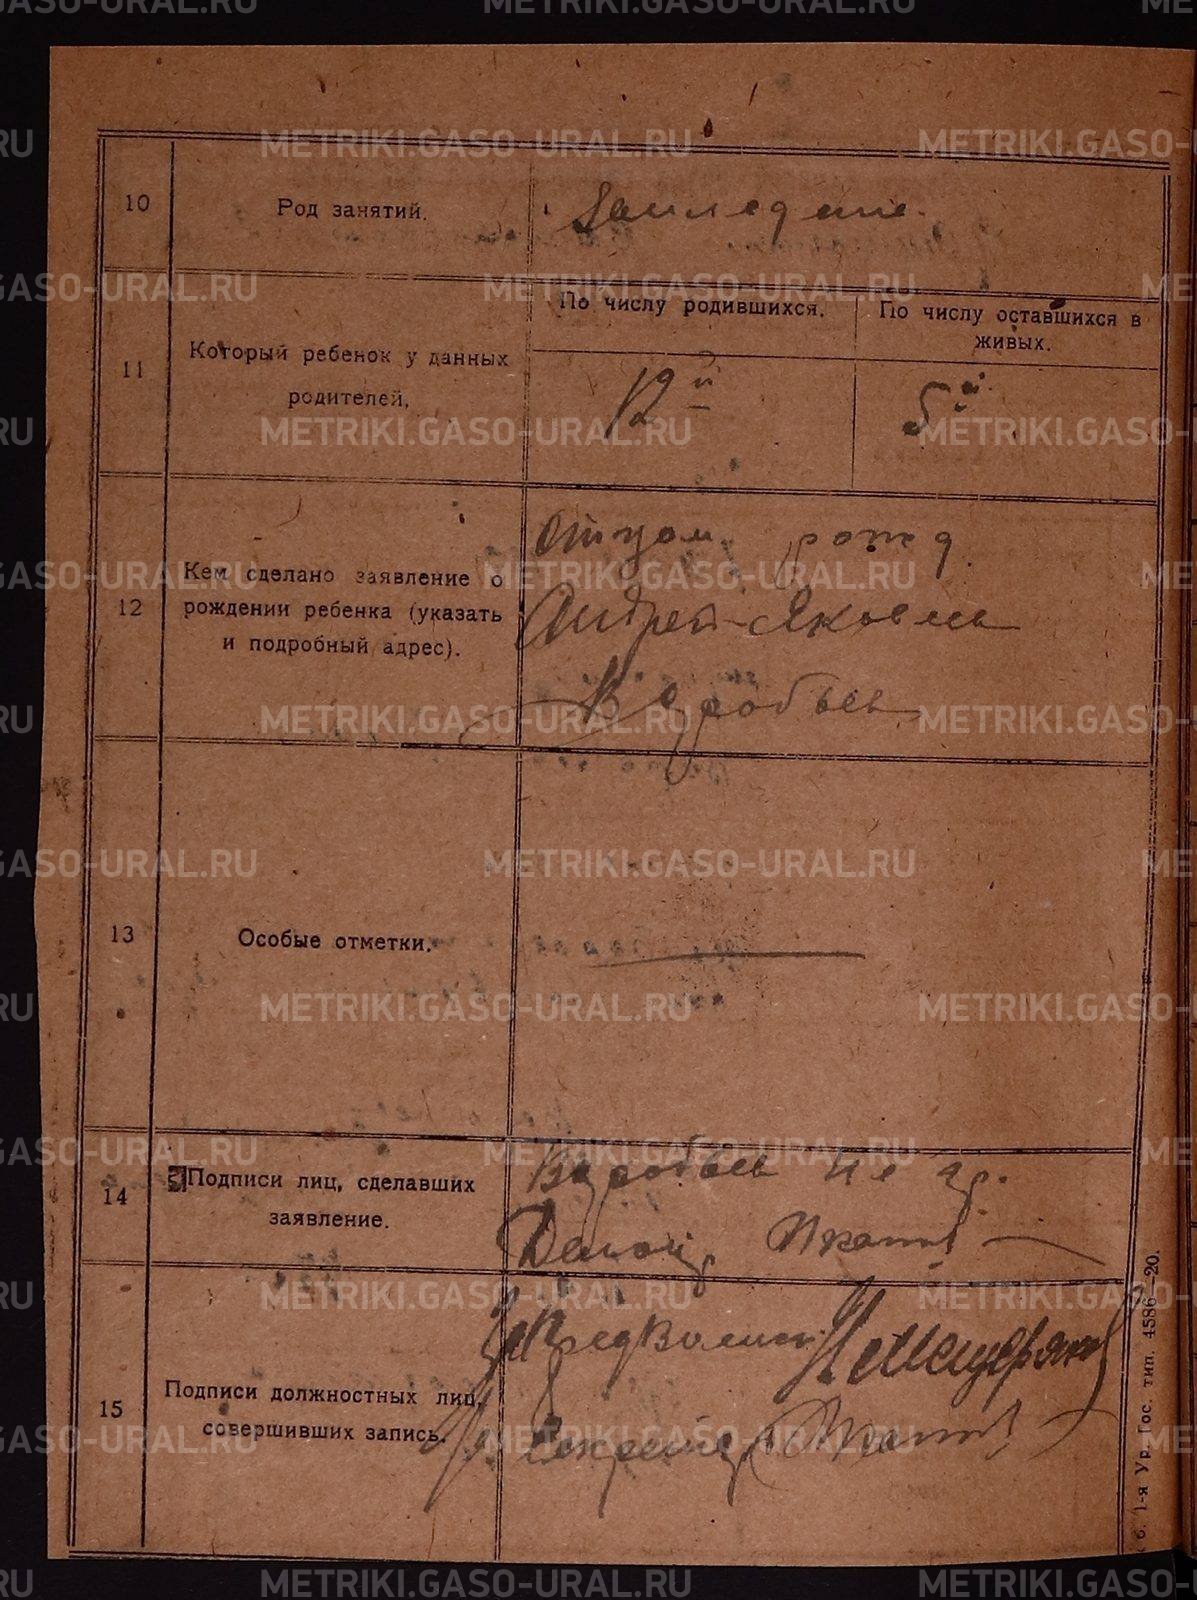 METRIKI.GASO-URAL.RU
10
Род занятий.
Землед
11
Который ребенок у данных
родителей.
По числу родившихся.
По числу оставшихся в
живых.
12й
5й
12
Кем сделано заявление о
рождении ребенка (указать
и подробный адрес).
Отцом рожд
Андрей Яковлев
Воробьев
13
Особые отметки.
14
Подписи лиц, сделавших
заявление.
Воробьев не гр.
15
Подписи должностных лиц,
совершивших запись.
Секретарь
1-я Ур. Гос. тип. 4586—20.